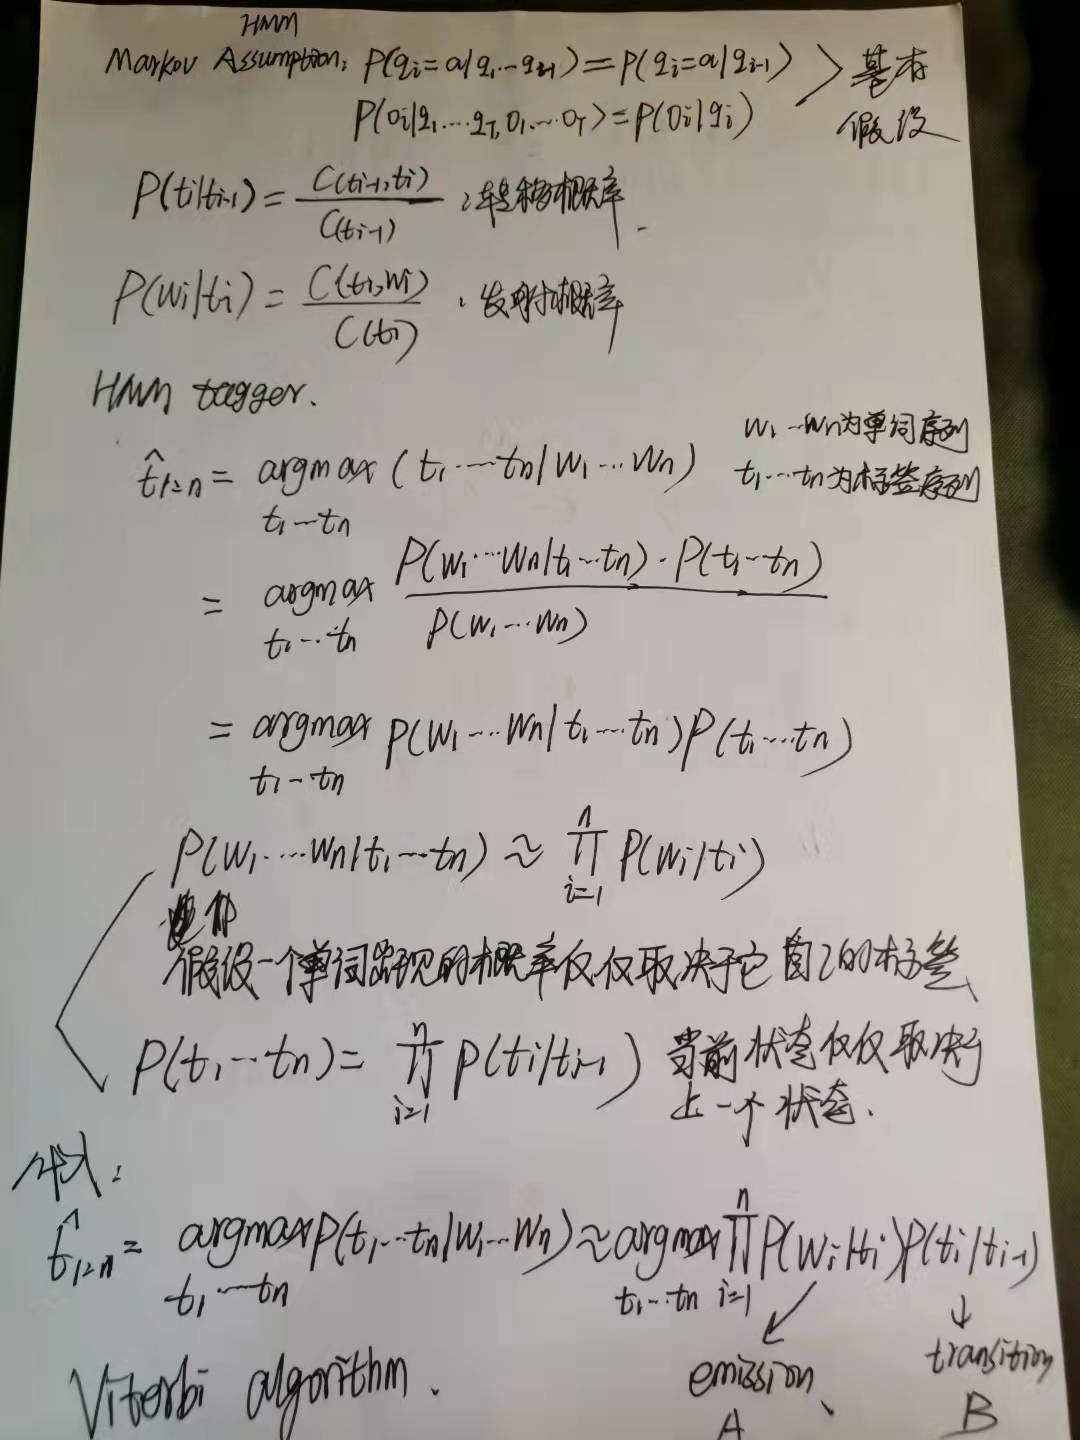 HMM
Markov Assumption: P(qi=a|q1...qi-1)=P(qi=a|qi-1) > 基本
P(oi|q1...qT,o1...oT)=P(oi|qi) 假设
P(ti|ti-1) = C(ti-1,ti) / C(ti-1) : 转移概率.
P(wi|ti) = C(ti,wi) / C(ti) : 发射概率
HMM tagger.
w1...wn为单词序列
t̂1:n = argmax t1...tn (t1...tn|w1...wn) t1...tn为标签序列
= argmax t1...tn P(w1...wn|t1...tn)·P(t1...tn) / P(w1...wn)
= argmax t1...tn P(w1...wn|t1...tn)P(t1...tn)
P(w1...wn|t1...tn) ≈ ∏ i=1 n P(wi|ti)
假设一个单词出现的概率仅仅取决于它自己的标签
P(t1...tn) = ∏ i=1 n P(ti|ti-1) 当前状态仅仅取决于
上一个状态.
t̂1:n = argmax t1...tn P(t1...tn|w1...wn) ≈ argmax t1...tn ∏ i=1 n P(wi|ti)P(ti|ti-1)
↙ ↓
emission、 transition
A B
Viterbi algorithm.